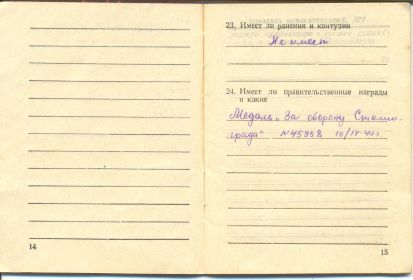 14
23. Имеет ли ранения и контузии
Не имеет
24. Имеет ли правительственные награды
и какие
Медаль „За оборону Сталин-
града" N45958 10/IV-44г.
15